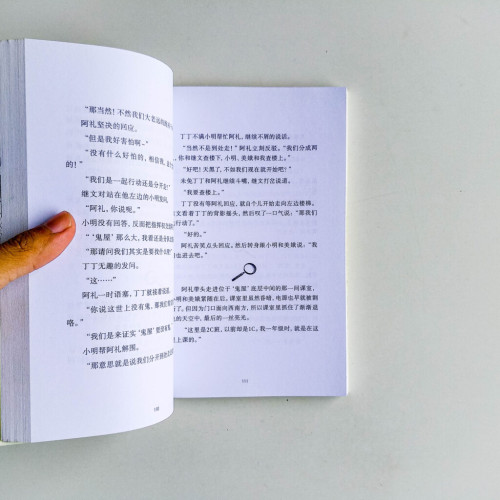 “那当然！不然我们大老远
阿礼坚决的回应。
“但是我好害怕啊。”
“没有什么好怕的，相信我，
的！”
“我们是一起行动还是分开走？”
继文对站在他左边的小明发问。
“阿礼，你说呢。”
小明没有回答，反而把
“‘鬼屋’那么大，我看还是分
“那请问我们其实是要做什么呢？”
丁丁无趣的发问。
“这……”
阿礼一时语塞，丁丁就接着说。
“你说这世上没有鬼，那我们
咯。”
“我们是来证实‘鬼屋’
小明帮阿礼解围。
“那意思就是说我们分开
丁丁不满小明帮忙阿礼，继续不屑的说话。
“当然不是到处走！”阿礼立刻反驳。“我们分成两
，你和继文查楼下，小明、美雄和我查楼上。”
“好吧！天黑了，不如我们现在就开始吧！”
未免丁丁和阿礼继续斗嘴，继文打岔说道。
“我要查楼上。”
丁丁没有等阿礼回应，就自个儿开始走向左边楼梯。
文看着丁丁的背影摇头，然后叹了一口气说：“那我们
行动了。”
“好的。”
阿礼苦笑点头回应。然后转身跟小明和美雄说：“我
也进去吧。”
阿礼带头走进位于‘鬼屋’底层中间的那一间课室，
明和美雄紧随在后。课室里虽然昏暗，电源也早就被割
了。但因为门口面向西南方，所以课室里抓住了渐渐退
的天空中，最后的一丝亮光。
“这里是2C班，以前却是1C。我一年级时，就是在这
上课的。”